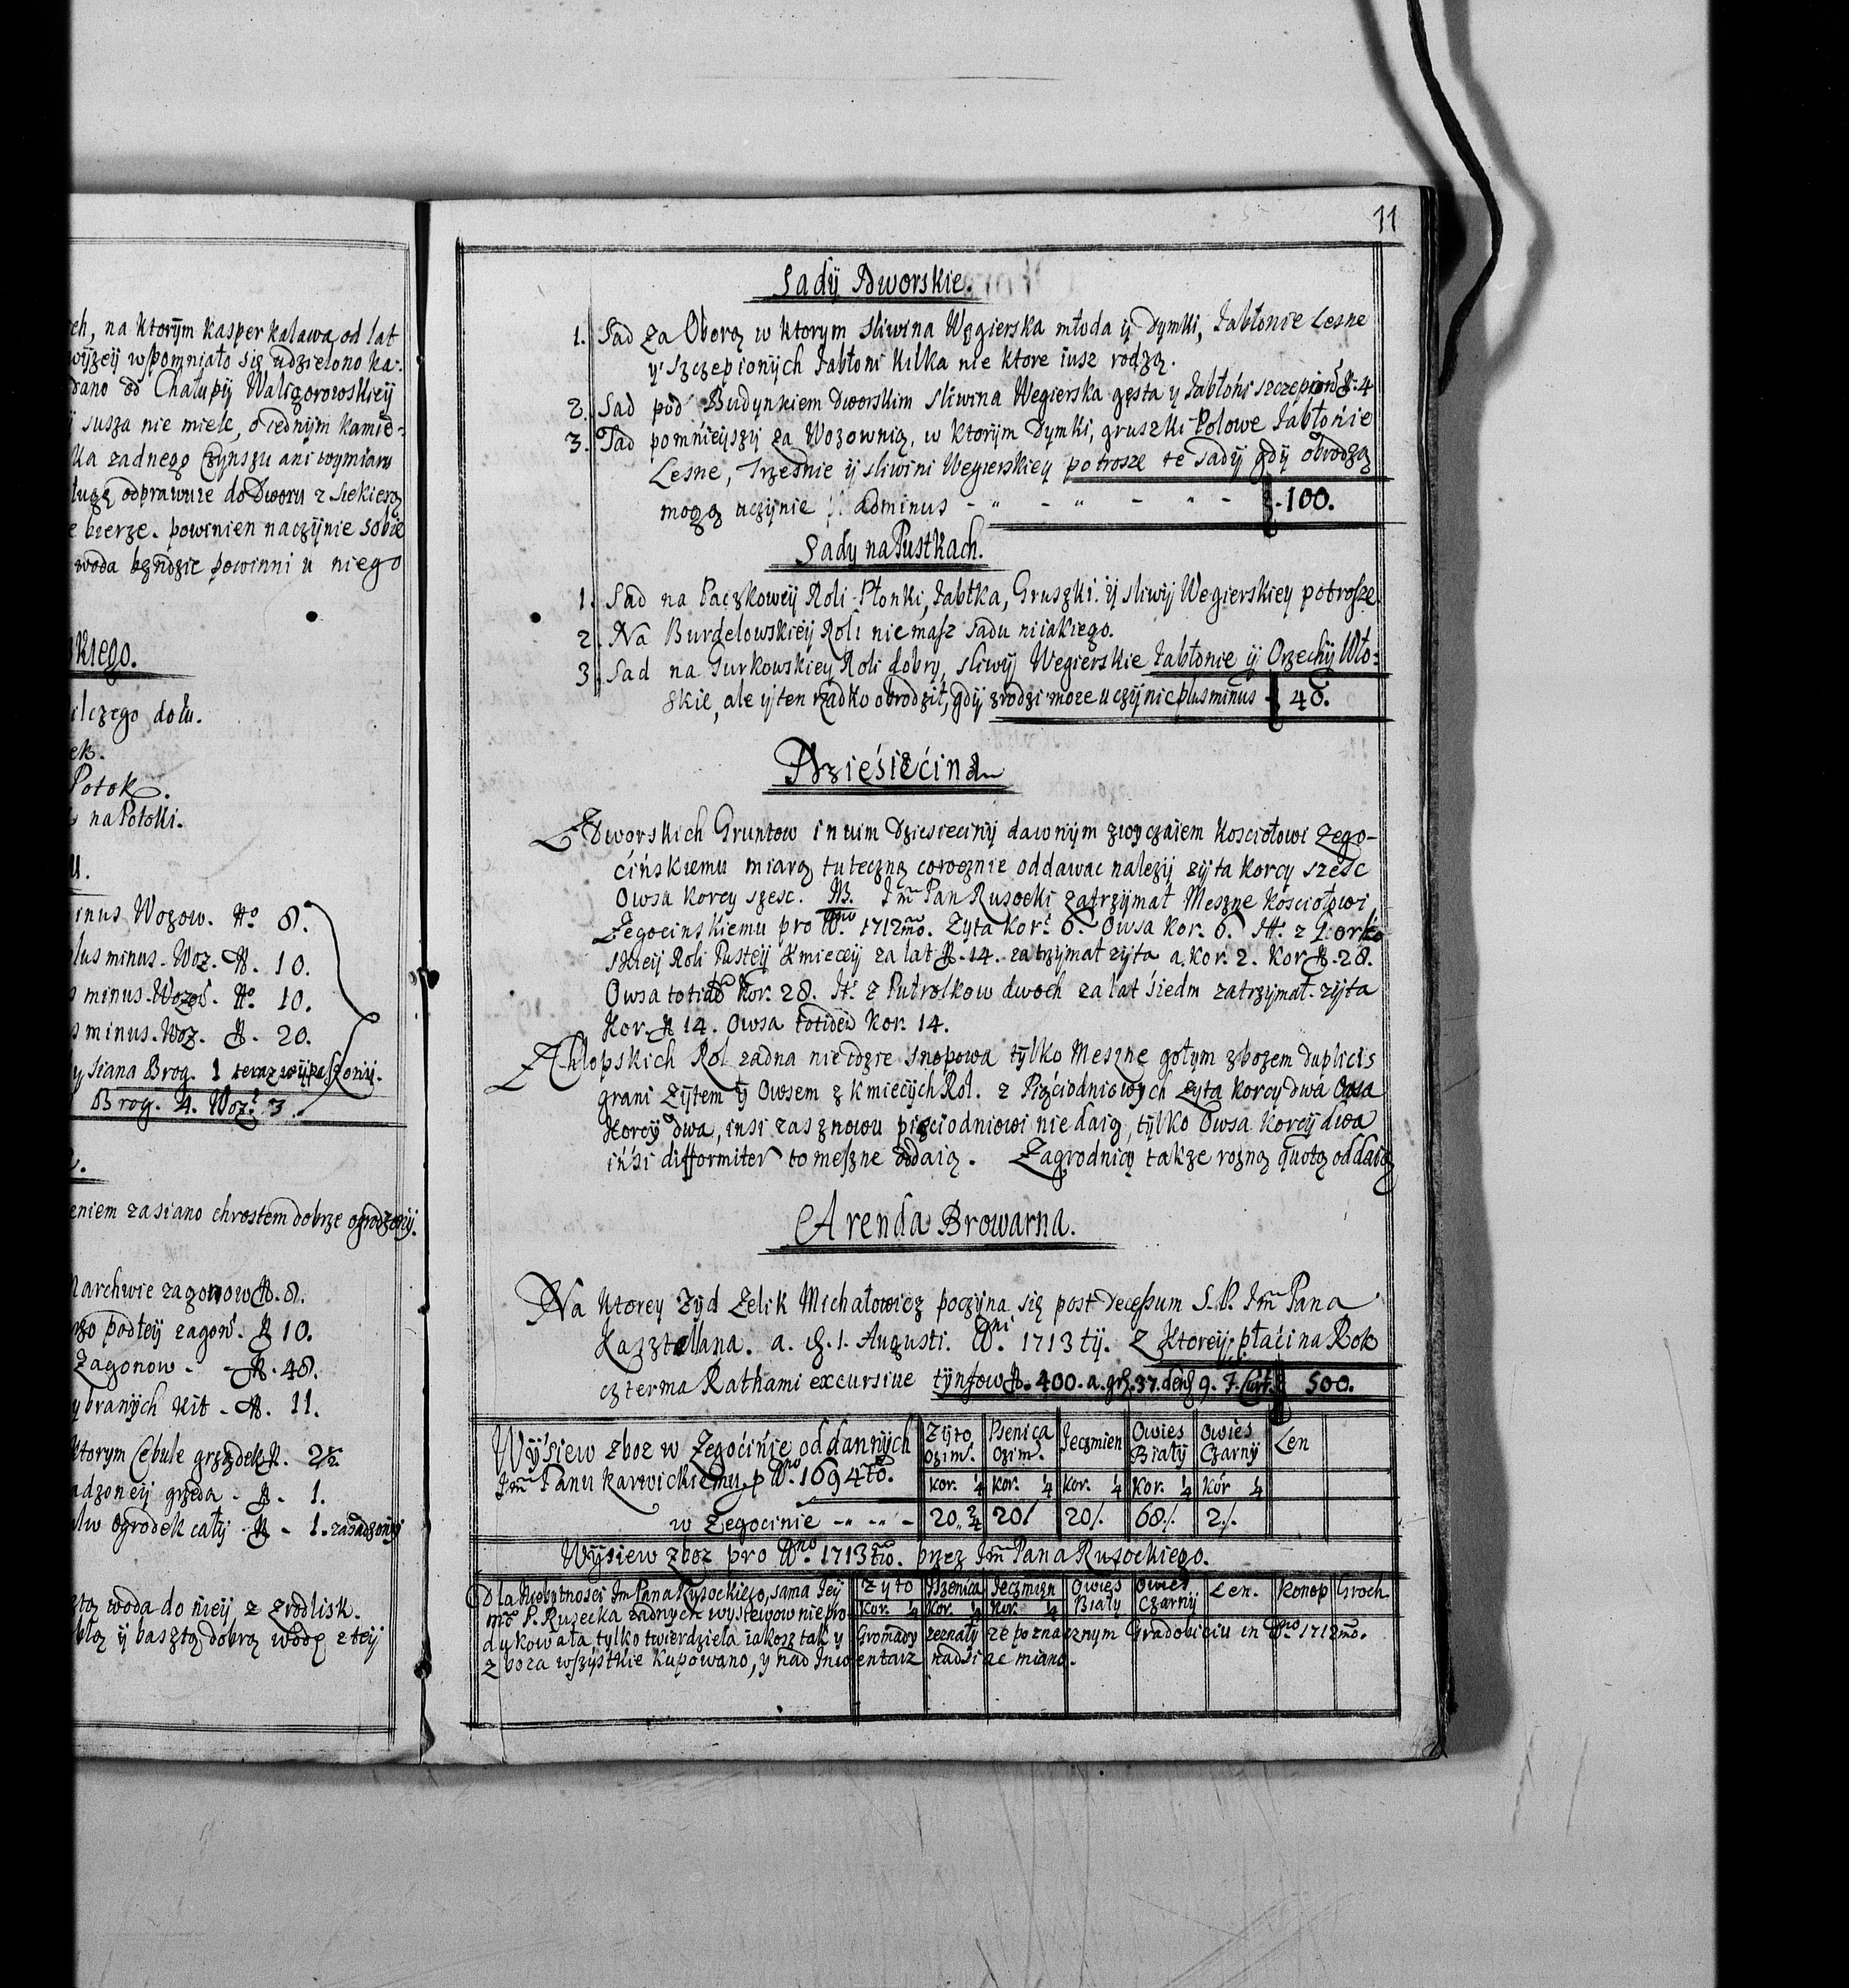 ch, na ktorÿm Kasper Kalawa, od lat
wÿzeÿ wspomniało się udzielono ka:
dano od Chałupÿ Waligorowoskieÿ
susza nie miele, o iednÿm kamie:
ka zadnego Czÿnszu ani wÿmiaru
ługę odprawuie do Dworu z siekierą
e bierze. powinien naczÿnie sobie
woda będzie powinni u niego
kiego.
ilczego dołu.
ek.
Potok.
na Potoki.
u.
inus Wozow. No 8.
lus minus. Woz. N. 10.
s minus. Wozow. No 10.
s minus. Woz. N. 20.
y siana Brog. 1 teraz wÿpaszonÿ.
Brog. 4. Woz. 3.
eniem zasiano chrostem dobrze ogrodzonÿ.
Marchwie zagonow N. 8.
podłeÿ zagon. N 10.
Zagonow - N. 48.
ybranÿch Nit - N. 11.
ktorym Cebule grządek N. 2½.
adzoneÿ grzęda - N. 1.
Ogrodek całÿ - N - 1. zasadzonÿ
woda do nieÿ z zrodlisk.
ÿ basztą dobrą wodę z teÿ
11
Sadÿ Dworskie.
1. Sad za Oborą w ktorym sliwina Węgierska młoda ÿ Dymki, Jabłonie Lesne
y Szczepionÿch Jabłoni kilka nie ktore iusz rodzą.
2. Sad pod Budynkiem Dworskim sliwina Wegierska gęsta y Jabłoni szczepion N. 4
3. Sad pomnieÿszÿ za Wozownią, w ktorÿm Dymki, gruszki Polowe Jabłonie
Lesne, Trzesnie ÿ sliwini Wegierskieÿ potrosze te sadÿ gdÿ obrodzą
mogą uczÿnic adminus - „ - „ - „ - 100.
Sady na Pustkach.
1. Sad na Paczkoweÿ Roli Płonki, Jabłka, Gruszki ÿ sliwÿ Wegierskiey potrosze.
2. Na Burdelowskieÿ Roli niemasz sadu niiakiego.
3. Sad na Gurkowskiey Roli dobry, sliwÿ Wegierskie Jabłonie ÿ Orzechÿ Wło:
skie, ale ÿ ten rzadko obrodził, gdÿ zrodzi moze uczÿnic plus minus 48.
Dziesięcina
Z Dworskich Gruntow in vim Dziesiecinÿ dawnÿm zwyczaiem Kosciołowi Zego-
cińskiemu miarą tuteczną corocznie oddawac nalezÿ zÿta korcy szesc
Owsa korcy szesc. NB. Jm Pan Rusocki zatrzÿmał Meszne Kosciołowi
Zegocinskiemu pro Ao. 1712mo. Zyta Kor. 6. Owsa Kor. 6. It. z Gorko
skieÿ Roli Pusteÿ Kmieceÿ za lat N. 14. zatrzÿmał zÿta a. Kor. 2. Kor N. 28.
Owsa totidē Kor. 28. It. z Putrolkow dwoch za lat siedm zatrzÿmał. zÿta
Kor. N 14. Owsa totidē Kor. 14.
Z Chlopskich Rol zadna nie idzie snopowa tÿlko Meszne gołym zbozem duplicis
grani Zÿtem ÿ Owsem z Kmiecÿch Rol. z Pięciodniowÿch zyta korcy dwa Owsa
Korcÿ dwa, insi zas znowu pięciodniowi nie daią, tÿlko Owsa korcÿ dwa
insi difformiter to meszne oddaią. Zagrodnicÿ takze rozną quotą oddaią
Arenda Browarna.
Na ktorey Zyd Zelik Michałowicz poczÿna się post decessum S. P. Jm Pana
Kasztellana. a. d. 1. Augusti. Ao. 1713 tÿ. z ktoreÿ płaci na Rok
czterma Rathami excursive tÿnfow N. 400. a. gr. 37. den 9. F. Curr. 500.
Wÿsiew zboz w Zegocinie oddannÿch Zÿto ozim. Psenica ozim. Jeczmien Owies Białÿ Owies Czarnÿ Len
Jm Panu Karwickiemu p Ao. 1694to. kor. ¼ kor. ¼ kor. ¼ kor. ¼ kor ¼
w Zegocinie - „ - „ - 20 „ ¾ 20/. 20/. 68/. 2/.
Wÿsiew zboz pro Ao. 1713tio. przez Jm Pana Rusockiego.
Dla Niebytnosci Jm Pana Rusockiego, sama Jeÿ Zyto Pszenica Jeczmien Owies Biały Owies Czarnÿ Len. Konop Groch
mc P. Rusecka zadnÿch wysiewow niepro Kor. ¼ Kor. ¼ Kor. ¼
dukowała tylko twierdziela iakosz tak y Gromady zeznałÿ ze po znacznym Gradobiciu in Ao 1712mo.
zboza wszÿstkie kupowano, y nad Inwentarz nadsiac miano.